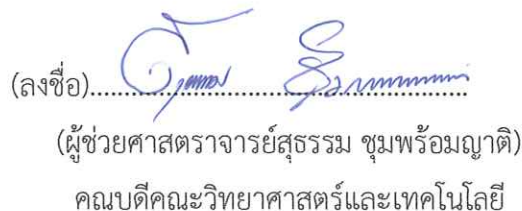 (ลงชื่อ)....................................................
(ผู้ช่วยศาสตราจารย์สุธรรม ชุมพร้อมญาติ)
คณบดีคณะวิทยาศาสตร์และเทคโนโลยี